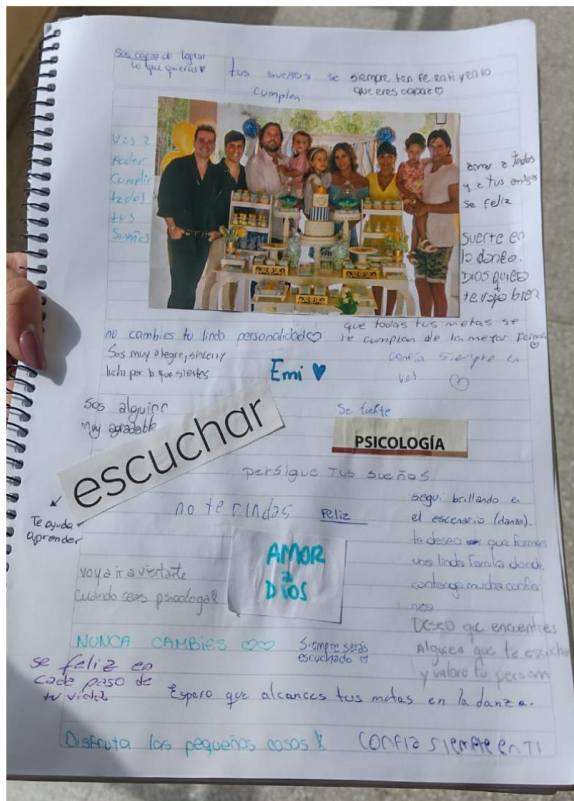 Sos capaz de lograr
lo que quieras
tus sueños se
cumplen
siempre ten fe en ti y en lo
que eres capaz
Vas a
poder
cumplir
todos
tus
Sueños
amar a todos
y a tus amigos
se feliz
suerte en
la danza.
Dios quiera
te vaya bien
no cambies tu linda personalidad
que todas tus metas se
te cumplan de la mejor forma
Sos muy alegre, sincera
lucha por lo que sientes
Emi
confía siempre en
vos
Sos alguien
muy agradable
escuchar
Se fuerte
PSICOLOGÍA
persigue tus sueños
Te ayuda a
aprender
no te rindas
Feliz
segui brillando en
el escenario (danza).
te deseo que formes
una linda familia donde
contenga mucha confian
nza
AMOR
a
DIOS
voy a ir a visitarte
Cuando seas psicologa
NUNCA CAMBIES
Siempre serás
escuchado
Deseo que encuentres
Alguien que te escuche
y valore tu person
se feliz en
cada paso de
tu vida
Espero que alcances tus metas en la danza.
Disfruta las pequeñas cosas
CONFIA SIEMPRE EN TI